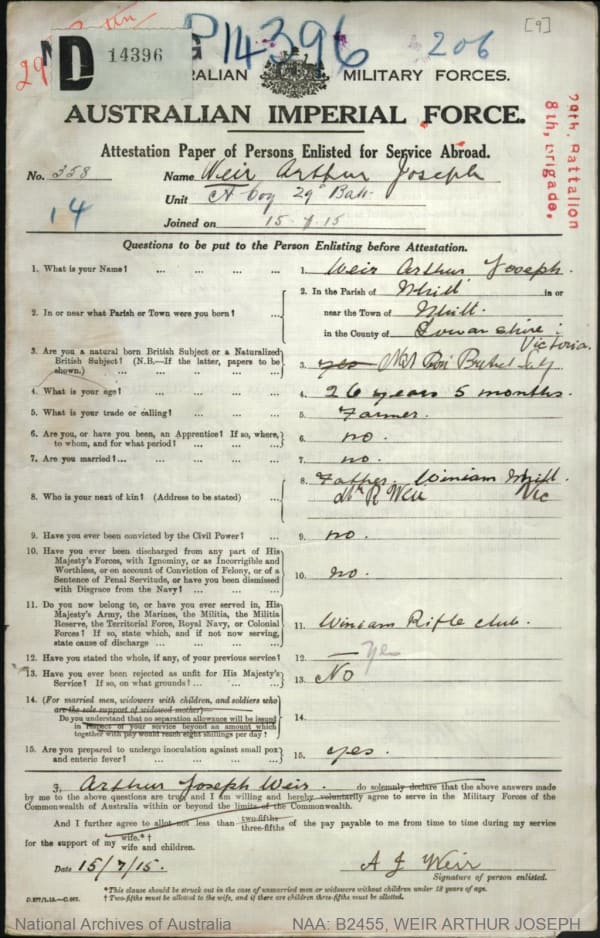 [9]
D 14396
P14396 206
MILITARY FORCES.
AUSTRALIAN IMPERIAL FORCE.
29th. Battalion
8th. Brigade,
Attestation Paper of Persons Enlisted for Service Abroad.
No. 358 Name Weir Arthur Joseph
Unit A Coy 29th Batt
14
Joined on 15.7.15
Questions to be put to the Person Enlisting before Attestation.
1. What is your Name? ... ... ... ... 1. Weir Arthur Joseph.
2. In or near what Parish or Town were you born? ... 2. In the Parish of Nhill in or
near the Town of Nhill.
in the County of Lowan Shire. Victoria.
3. Are you a natural born British Subject or a Naturalized
British Subject? (N.B.—If the latter, papers to be
shown.) ... ... ... ... 3. yes Nat Bor
4. What is your age? ... ... ... ... 4. 26 years 5 months.
5. What is your trade or calling? ... ... ... 5. Farmer.
6. Are you, or have you been, an Apprentice? If so, where,
to whom, and for what period? ... ... ... 6. no.
7. Are you married? ... ... ... ... 7. no.
8. Who is your next of kin? (Address to be stated) ... 8. Father. Winiam Nhill.
Mr R Weir Vic
9. Have you ever been convicted by the Civil Power? ... 9. no.
10. Have you ever been discharged from any part of His
Majesty's Forces, with Ignominy, or as Incorrigible and
Worthless, or on account of Conviction of Felony, or of a
Sentence of Penal Servitude, or have you been dismissed
with Disgrace from the Navy? ... ... 10. no.
11. Do you now belong to, or have you ever served in, His
Majesty's Army, the Marines, the Militia, the Militia
Reserve, the Territorial Force, Royal Navy, or Colonial
Forces? If so, state which, and if not now serving,
state cause of discharge ... ... ... 11. Winiam Rifle club.
12. Have you stated the whole, if any, of your previous service? 12. — yes
13. Have you ever been rejected as unfit for His Majesty's
Service? If so, on what grounds? ... ... 13. No
14. (For married men, widowers with children, and soldiers who
are the sole support of widowed mother)—
Do you understand that no separation allowance will be issued
in respect of your service beyond an amount which
together with pay would reach eight shillings per day? 14.
15. Are you prepared to undergo inoculation against small pox
and enteric fever? ... ... ... 15. yes.
I, Arthur Joseph Weir. do solemnly declare that the above answers made
by me to the above questions are true, and I am willing and hereby voluntarily agree to serve in the Military Forces of the
Commonwealth of Australia within or beyond the limits of the Commonwealth.
And I further agree to allot not less than two-fifths three-fifths of the pay payable to me from time to time during my service
for the support of my wife.*† wife and children.
Date 15/7/15. A J Weir
Signature of person enlisted.
*This clause should be struck out in the case of unmarried men or widowers without children under 18 years of age.
† Two-fifths must be allotted to the wife, and if there are children three-fifths must be allotted.
National Archives of Australia NAA: B2455, WEIR ARTHUR JOSEPH